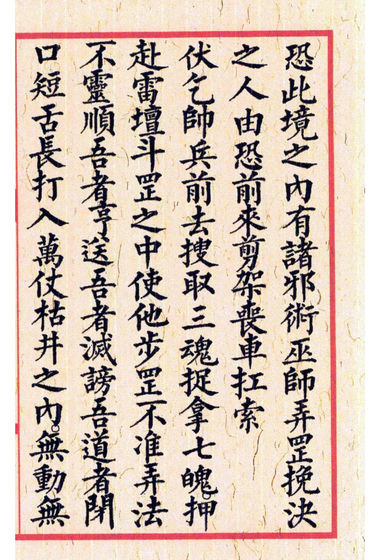 恐此境之内有諸邪術巫師弄罡挽決
之人由恐前來剪架喪車扛索
伏乞帥兵前去搜取三魂捉拿七魄押
赴雷壇斗罡之中使他步罡不准弄法
不靈順吾者亨送吾者滅謗吾道者閉
口短舌長打入萬仗枯井之內。無動無